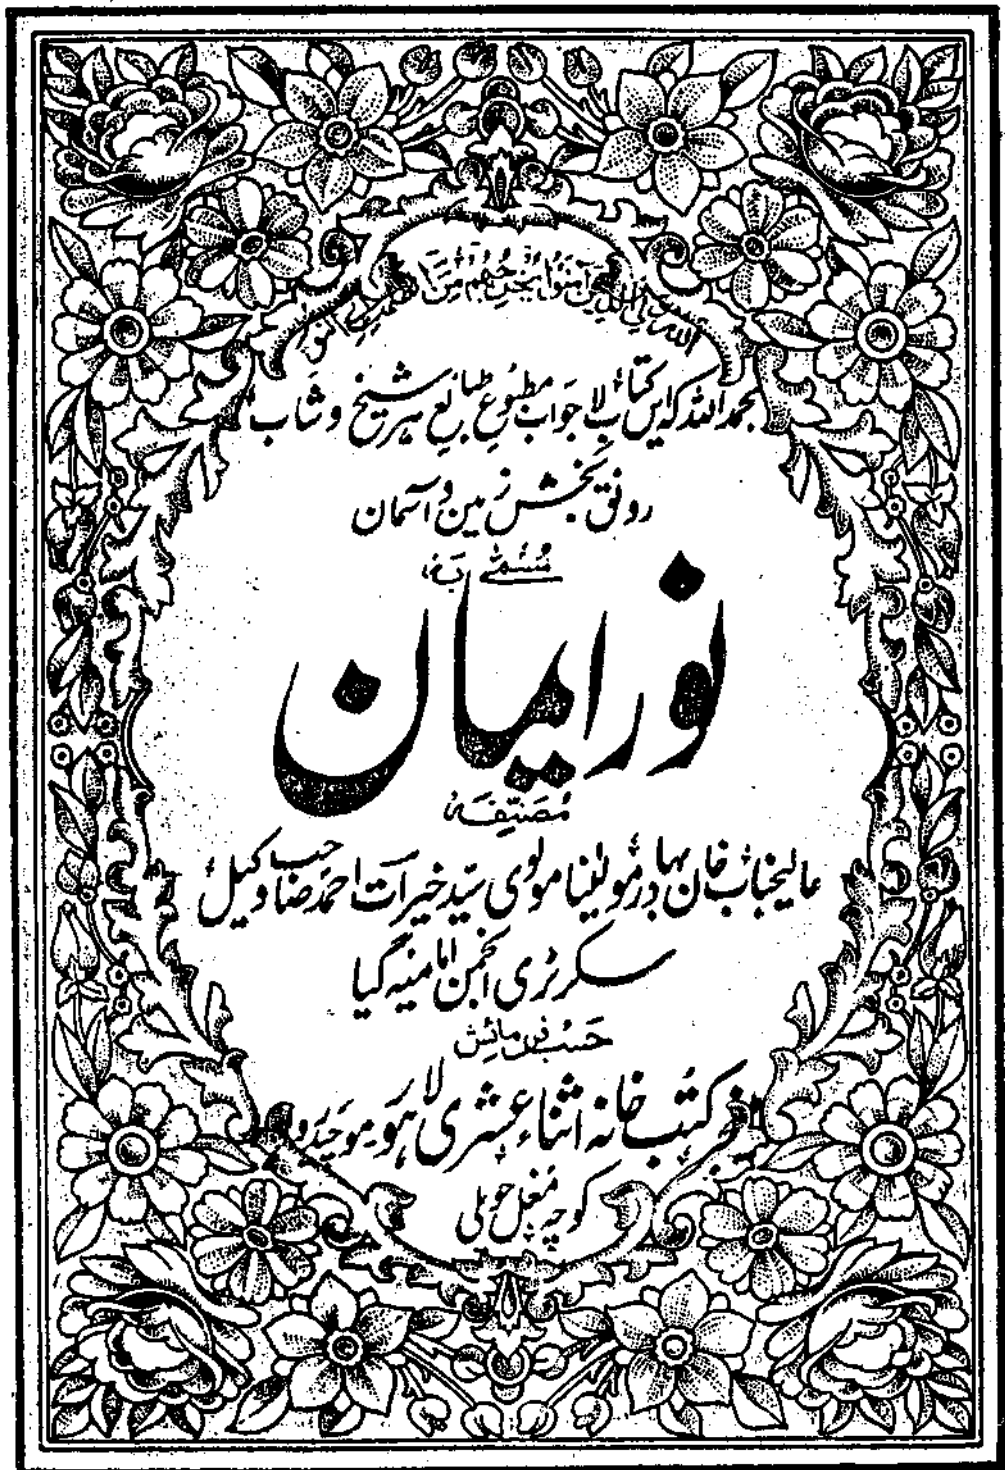 اللہ ولی الذین آمنوا یخرجہم من الظلمات الی النور
بحمد اللہ کہ ایں کتاب لا جواب مطبوع طبائع ہر شیخ و شاب
رونق بخش زمین و آسمان
مُسَمّٰے بَہ
نور ایمان
مُصَنّفَہ
عالیجناب خان بہادر مولٰینا مولوی سیّد خیرات احمد صاحب وکیل
سکرٹری انجمن امامیہ گیا
حَسبِ فرمائش
کُتب خانہ اثناء عشری لاہور موچیدروازہ
کوچہ مغل حویلی